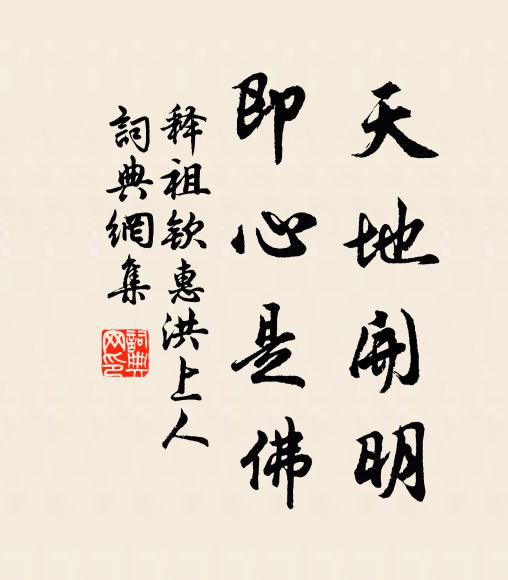 天地開明
即心是佛
释祖欽惠洪上人
詞典網集
詞典網印